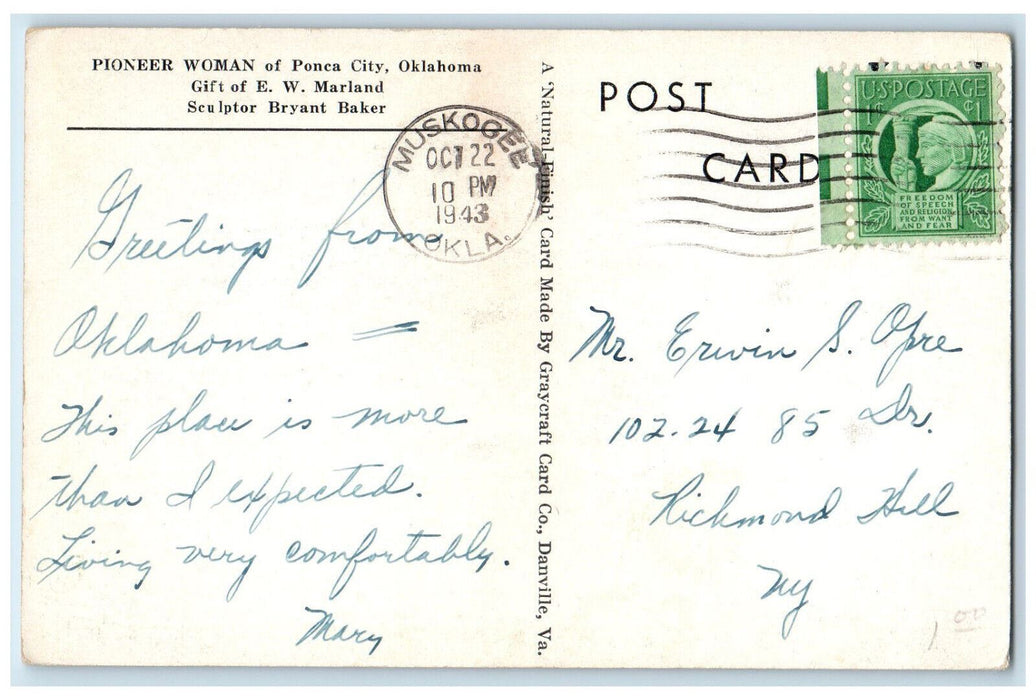 PIONEER WOMAN of Ponca City, Oklahoma
Gift of E. W. Marland
Sculptor Bryant Baker
MUSKOGEE
OCT 22
10 PM
1943
OKLA.
Greetings from
Oklahoma =
This place is more
than I expected.
Living very comfortably.
Mary
A 'Natural-Finish' Card Made By Graycraft Card Co., Danville, Va.
POST
CARD
U.S. POSTAGE
1¢ ¢1
FREEDOM
OF SPEECH
AND RELIGION
FROM WANT
AND FEAR
Mr. Erwin S. Opre
102-24 85 Dr.
Richmond Hill
NY
1.00